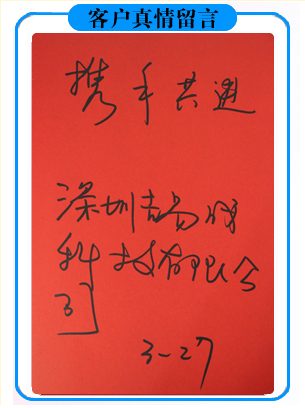 客户真情留言
携手共进
深圳吉易
科技有限公
司
3-27